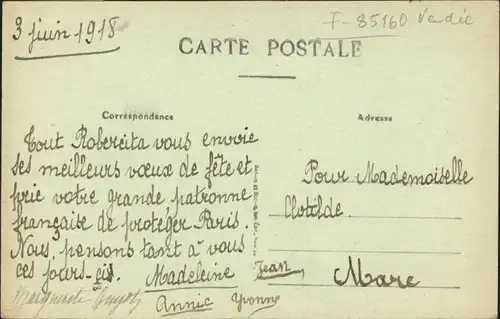 3 juin 1918
F-85160 Vendée
CARTE POSTALE
Correspondance
Adresse
Tout Robercita vous envoie
ses meilleurs vœux de fête et
prie votre grande patronne
française de protéger Paris.
Nous pensons tant à vous
ces jours-ci.
Madeleine
Jean
Marc
Annie
Yvonne
Marguerite
Pour Mademoiselle
Clotilde.